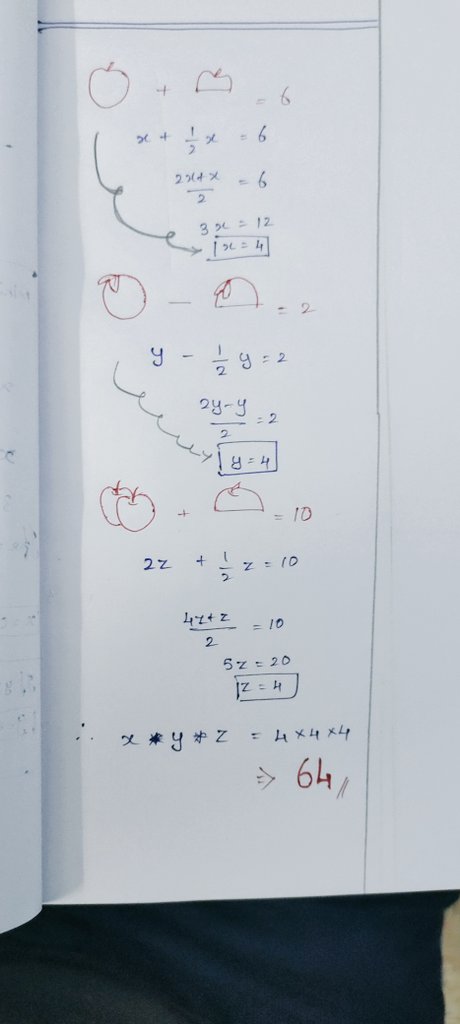 + = 6
x + 1/2 x = 6
2x+x/2 = 6
3x = 12
x = 4
− = 2
y − 1/2 y = 2
2y−y/2 = 2
y = 4
+ = 10
2z + 1/2 z = 10
4z+z/2 = 10
5z = 20
z = 4
∴ x * y * z = 4×4×4
⇒ 64 //